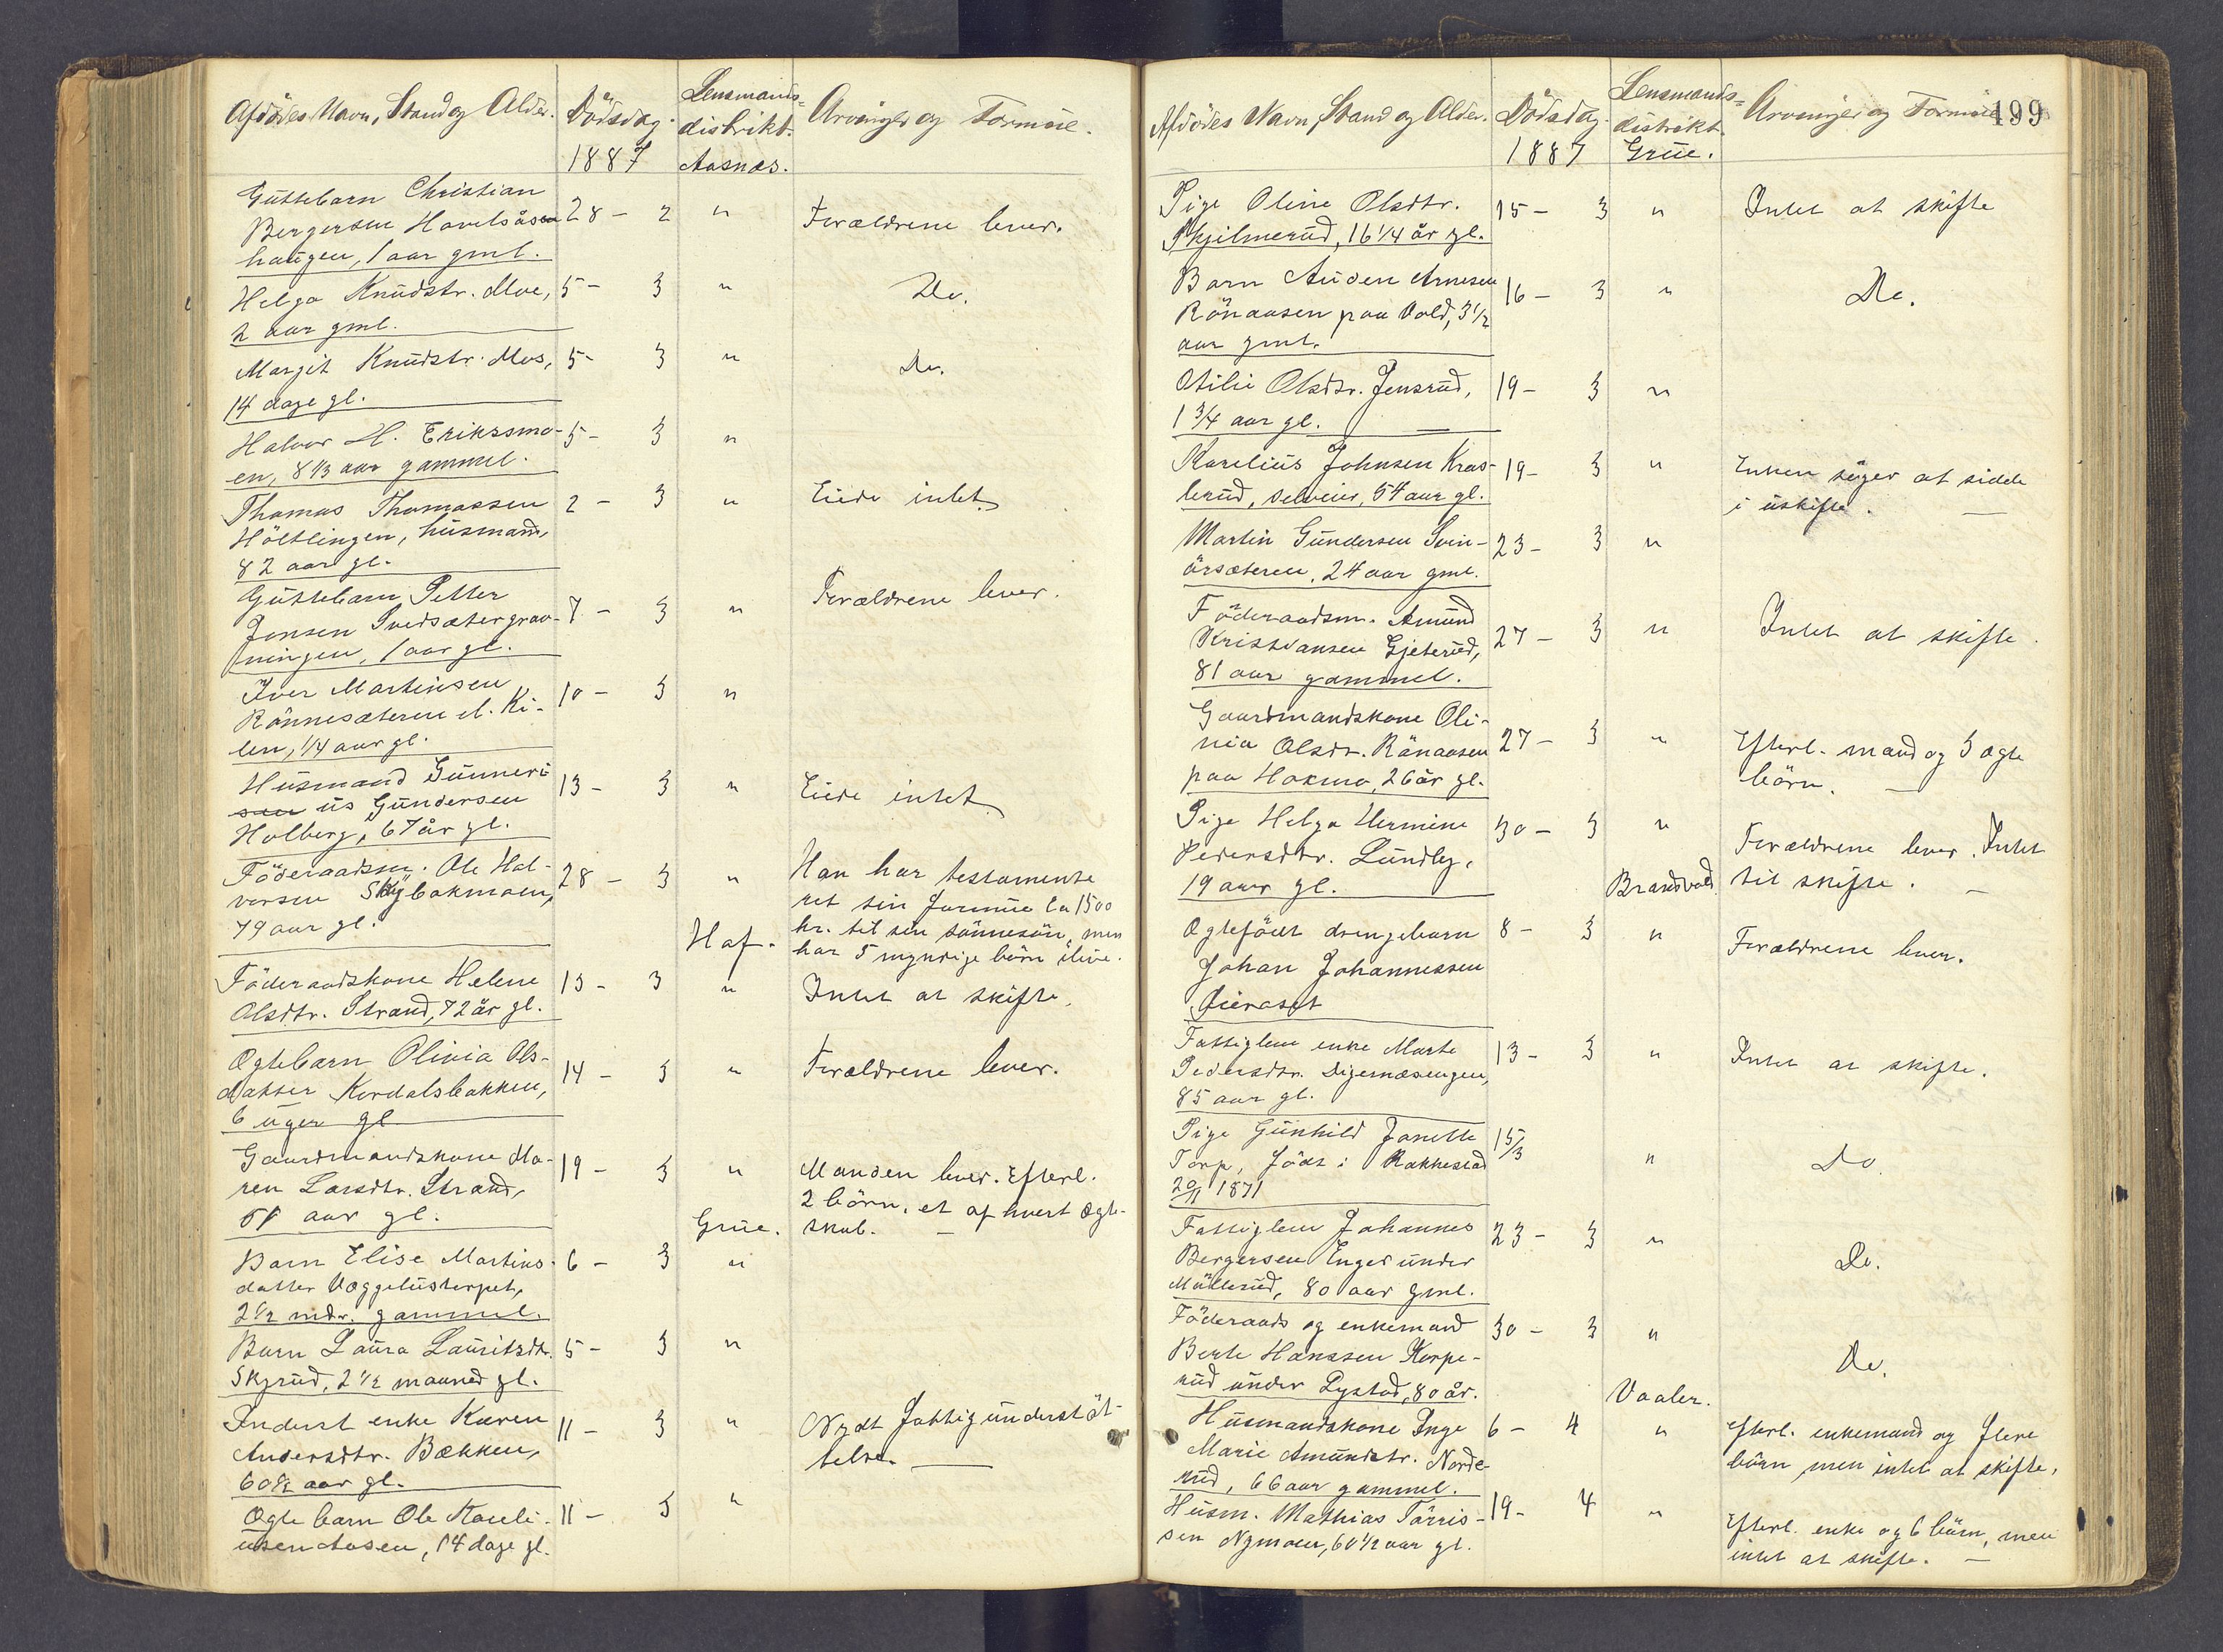 Afdödes Navn, Stand og Alder. Dödsdag Lensmands= distrikt. Arvinger og Formue.
1887 Aasnæs.
Guttebarn Christian
Bergersen Havelsåsen 28 - 2 " Forældrene lever.
haugen, 1 aar gml.
Helga Knudstr. Moe, 5 - 3 " Do.
2 aar gml.
Margit Knudstr. Moe, 5 - 3 " Do.
14 dage gl.
Halvor H. Erikssmo- 5 - 3 "
en, 8 1/3 aar gammel.
Thomas Thomassen 2 - 3 " Eiede intet
Höltlingen, husmand,
82 aar gl.
Guttebarn Petter
Jonsen Svedsætergrav- 7 - 3 " Forældrene lever.
ningen, 1 aar gl.
Iver Martinsen 10 - 3 "
Rönnesæteren el. Ki-
len, 1/4 aar gl.
Husmand Gunneri 13 - 3 " Eiede intet
sen us Gundersen
Holberg, 67 år gl.
Föderaadsm. Ole Hal- 28 - 3 " Han har testamente
vorsen Skybakmoen, ret sin formue ca 1500
79 aar gl. kr. til sin sönnesön, men
Hof. har 5 myndige börn ilive.
Föderaadskone Helene 13 - 3 " Intet at skifte.
Olsdtr. Strand, 72 år gl.
Ogtebarn Olivia Ols- 14 - 3 " Forældrene lever.
datter Kordalsbakken,
6 uger gl
Gaardmandskone Ma- 19 - 3 " Manden lever. Efterl.
ren Larsdtr. Strand, 2 börn, et af hvert ægte-
51 aar gl. Grue. skab. —
Barn Elise Martins- 6 - 3 "
datter Vaggelustorpet,
2 1/2 mdr. gammel.
Barn Laura Lauritsdtr. 5 - 3 "
Skjrud, 2 1/2 maaned gl.
Inderst enke Karen 11 - 3 " Nydt fattigunderstöt-
Andersdtr. Bækken, telse. —
60 1/2 aar gl.
Ogte barn Ole Kareli- 11 - 3 "
usen Aasen, 14 dage gl.
Afdödes Navn, Stand og Alder. Dödsdag. Lensmands= distrikt. Arvinger og Formue 199
1887 Grue.
Pige Oline Olsdtr. 15 - 3 " Intet at skifte
Skjilmerud, 16 1/4 år gl.
Barn Auden Arnesen 16 - 3 " Do.
Rönaasen paa Vold, 3 1/2
aar gml.
Otilie Olsdtr. Jensrud, 19 - 3 "
1 3/4 aar gl. —
Karelius Johnsen Kras- 19 - 3 " Enken söger at sidde
lerud, selveier, 54 aar gl. i uskifte. —
Martin Gundersen Svin- 23 - 3 "
örsæteren, 24 aar gml.
Föderaadsm. Amund 27 - 3 " Intet at skifte.
Kristiansen Gjeterud,
81 aar gammel.
Gaardmandskone Oli-
nia Olsdr. Rönaasen 27 - 3 " Efterl. mand og 3 ægte
paa Hokmo, 26 år gl. börn. —
Pige Helga Hermine 30 - 3 " Forældrene lever. Intet
Pedersdtr. Lundby, til skifte. —
19 aar gl. Brandvold
Ogtefödt drengebarn 8 - 3 " Forældrene lever.
Johan Johannessen
Fattiglem enke Marte 13 - 3 " Intet at skifte.
Pedersdtr. Digernæsengen,
85 aar gl.
Pige Gunhild Janette 15/3 " Do.
Torp, födt i Rakkestad
20/11 1871
Fattiglem Johannes 23 - 3 " Do.
Bergersen Enger under
Möllerud, 80 aar gml.
Föderaads og enkemand 30 - 3 " Do.
Bernt Hanssen Korpe-
rud under Lystad, 80 år. Vaaler.
Husmandskone Inge 6 - 4 " Efterl. enkemand og flere
Marie Amundstr. Norde- börn men intet at skifte.
rud, 66 aar gammel.
Husm. Mathias Törris- 19 - 4 " Efterl. enke og 6 börn, men
sen Nymoen, 60 1/2 aar gl. intet at skifte. —